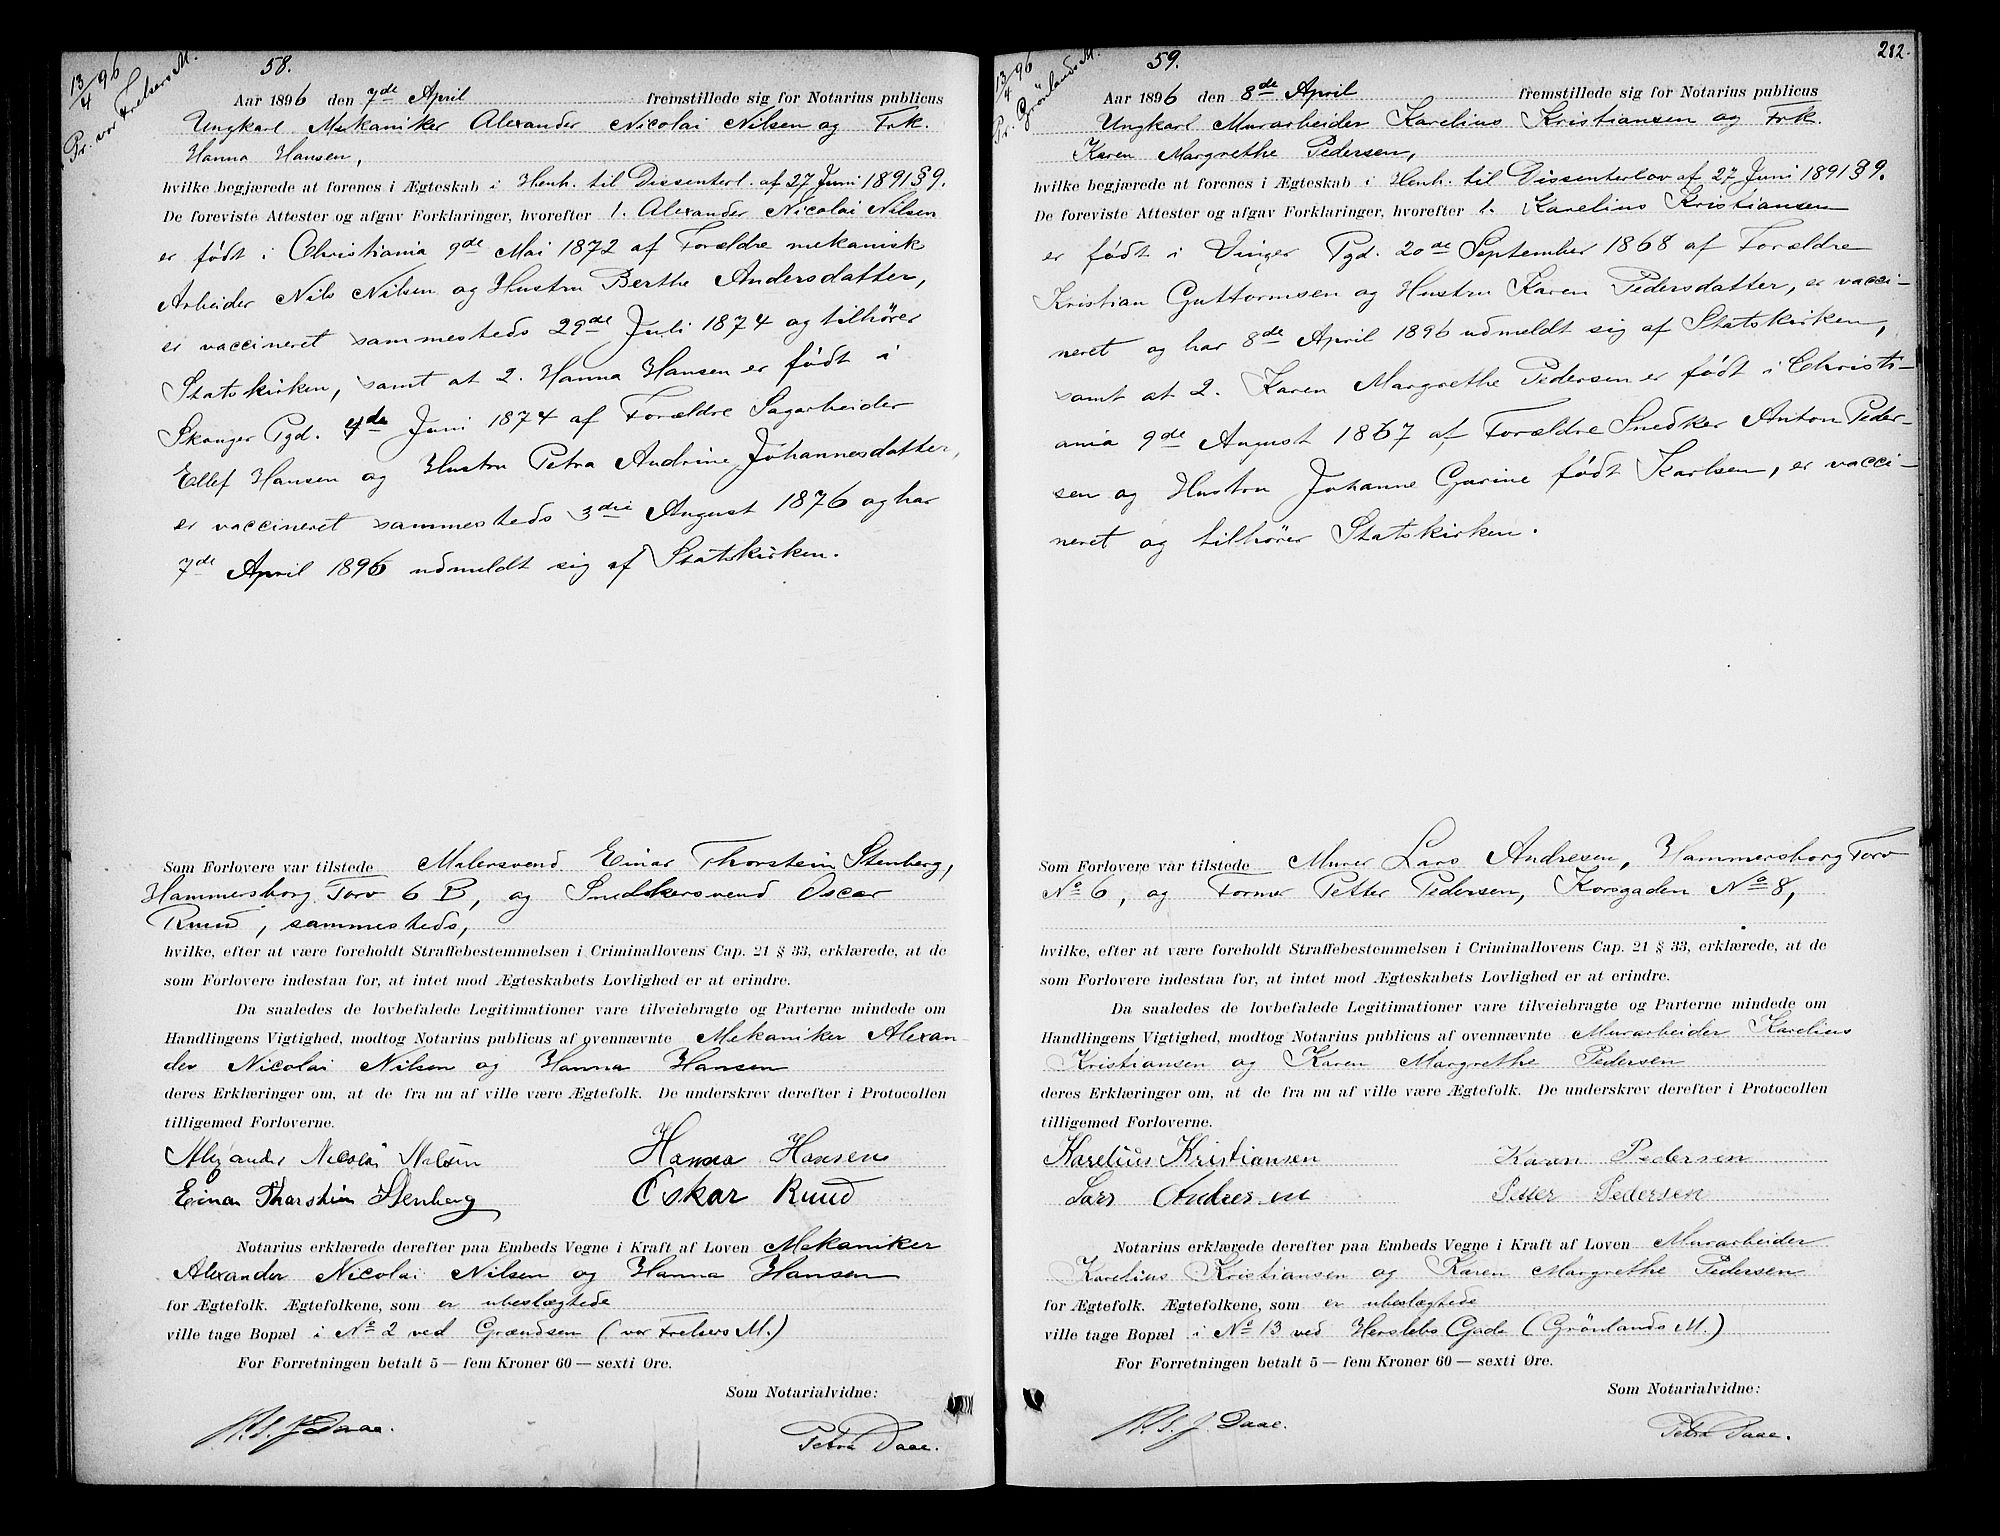 13/4 96
Pr. vor Frelsers M.
58.
Aar 1896 den 7de April fremstillede sig for Notarius publicus
Ungkarl Mekaniker Alexander Nicolai Nilsen og Frk.
Hanna Hansen,
hvilke begjærede at forenes i Ægteskab i Henh. til Dissenterl. af 27 Juni 1891 § 9.
De foreviste Attester og afgav Forklaringer, hvorefter 1. Alexander Nicolai Nilsen
er født i Christiania 9de Mai 1872 af Forældre mekanisk
Arbeider Nils Nilsen og Hustru Berthe Andersdatter,
er vaccineret sammesteds 29de Juli 1874 og tilhører
Statskirken, samt at 2. Hanna Hansen er født i
Skanger Pgd. 4de Juni 1874 af Forældre Sagarbeider
Ellef Hansen og Hustru Petra Andrine Johannesdatter,
er vaccineret sammesteds 3die August 1876 og har
7de April 1896 udmeldt sig af Statskirken.
Som Forlovere var tilstede Malersvend Einar Thorstein Stenberg,
Hammersborg Torv 6 B, og Snedkersvend Oscar
Ruud, sammesteds,
hvilke, efter at være foreholdt Straffebestemmelsen i Criminallovens Cap. 21 § 33, erklærede, at de
som Forlovere indestaa for, at intet mod Ægteskabets Lovlighed er at erindre.
Da saaledes de lovbefalede Legitimationer vare tilveiebragte og Parterne mindede om
Handlingens Vigtighed, modtog Notarius publicus af ovennævnte Mekaniker Alexan-
der Nicolai Nilsen og Hanna Hansen
deres Erklæringer om, at de fra nu af ville være Ægtefolk. De underskrev derefter i Protocollen
tilligemed Forloverne.
Alexander Nicolai Nilsen Hanna Hansen
Einar Thorstein Stenberg Oskar Ruud
Notarius erklærede derefter paa Embeds Vegne i Kraft af Loven Mekaniker
Alexander Nicolai Nilsen og Hanna Hansen
for Ægtefolk. Ægtefolkene, som er ubeslægtede
ville tage Bopæl i No 2 ved Grændsen (vor Frelsers M.)
For Forretningen betalt 5 — fem Kroner 60 — sexti Øre.
Som Notarialvidne:
J. Daae. Petra Daae.
212.
13/4 96
Pr. Grönlands M.
59.
Aar 1896 den 8de April fremstillede sig for Notarius publicus
Ungkarl Murarbeider Karelius Kristiansen og Frk.
Karen Margrethe Pedersen,
hvilke begjærede at forenes i Ægteskab i Henh. til Dissenterlov af 27 Juni 1891 § 9.
De foreviste Attester og afgav Forklaringer, hvorefter 1. Karelius Kristiansen
er født i Vinger Pgd. 20de September 1868 af Forældre
Kristian Guttormsen og Hustru Karen Pedersdatter, er vacci-
neret og har 8de April 1896 udmeldt sig af Statskirken,
samt at 2. Karen Margrethe Pedersen er født i Christi-
ania 9de August 1867 af Forældre Snedker Anton Peder-
sen og Hustru Johanne Gurine født Karlsen, er vacci-
neret og tilhører Statskirken.
Som Forlovere var tilstede Murer Lars Andresen, Hammersborg Torv
No 6, og Former Petter Pedersen, Korsgaden No 8,
hvilke, efter at være foreholdt Straffebestemmelsen i Criminallovens Cap. 21 § 33, erklærede, at de
som Forlovere indestaa for, at intet mod Ægteskabets Lovlighed er at erindre.
Da saaledes de lovbefalede Legitimationer vare tilveiebragte og Parterne mindede om
Handlingens Vigtighed, modtog Notarius publicus af ovennævnte Murarbeider Karelius
Kristiansen og Karen Margrethe Pedersen
deres Erklæringer om, at de fra nu af ville være Ægtefolk. De underskrev derefter i Protocollen
tilligemed Forloverne.
Karelius Kristiansen Karen Pedersen
Lars Andresen Petter Pedersen
Notarius erklærede derefter paa Embeds Vegne i Kraft af Loven Murarbeider
Karelius Kristiansen og Karen Margrethe Pedersen
for Ægtefolk. Ægtefolkene, som er ubeslægtede
ville tage Bopæl i No 13 ved Herslebs Gade (Grönlands M.)
For Forretningen betalt 5 — fem Kroner 60 — sexti Øre.
Som Notarialvidne:
J. Daae. Petra Daae.